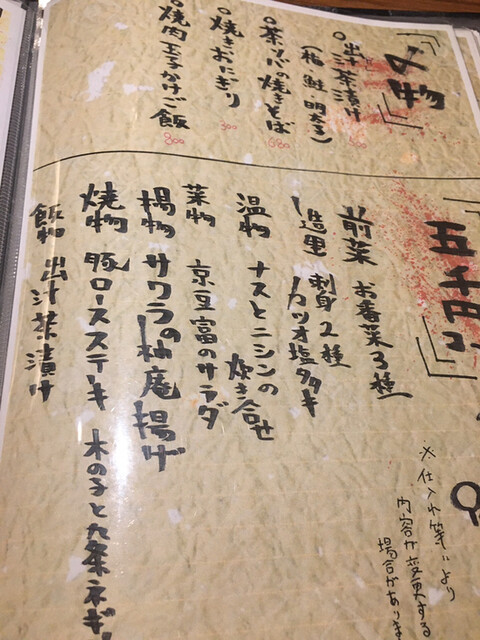 〆物
出汁茶漬け
(梅・鮭・明太子)
茶ソバの焼きそば
680
焼きおにぎり
300
焼肉玉子かけご飯
800
五千円コー
前菜 お番菜3種
造里 刺身2種
カツオ塩タタキ
温物 ナスとニシンの
炊き合せ
菜物 京豆富のサラダ
揚物 サワラの柚庵揚げ
焼物 豚ロースステーキ 木の子と九条ネギ
飯物 出汁茶漬け
※仕入れ等により
内容が変更する
場合があります